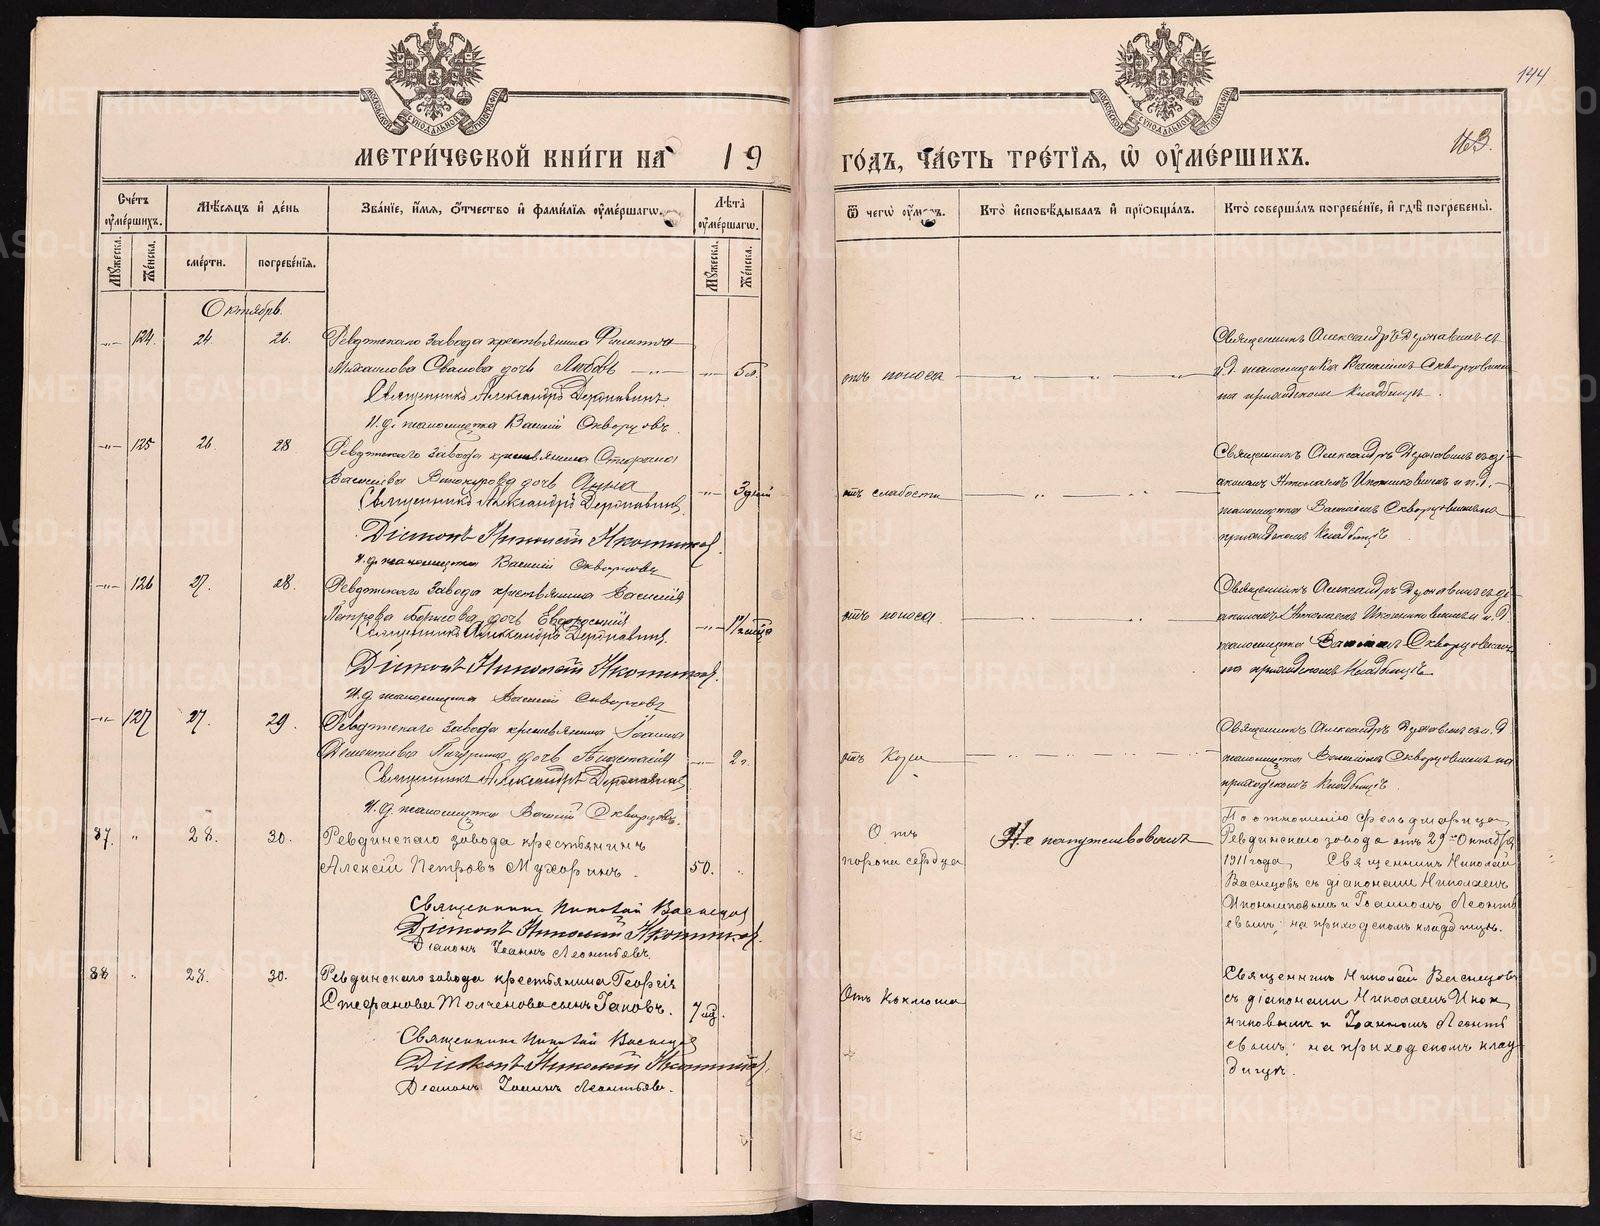 144
МОСКОВСКОЙ СѴНОДАЛЬНОЙ ТИПОГРАФІИ
МОСКОВСКОЙ СѴНОДАЛЬНОЙ ТИПОГРАФІИ
МЕТРИ́ЧЕСКОЙ КНИ́ГИ НА 19
ГО́ДЪ, ЧА́СТЬ ТРЕ́ТІѦ, Ѡ҆ ОУ҆МЕ́РШИХЪ.
Сче́тъ оу҆ме́ршихъ.
Мѣ́сѧцъ и҆ де́нь
Зва́нїе, и҆́мѧ, о҆́тчество и҆ фами́лїѧ оу҆ме́ршагѡ.
Лѣ́та оу҆ме́ршагѡ.
Ѿ чегѡ̀ оу҆́меръ.
Кто̀ и҆сповѣ́дывалъ и҆ прїѡбща́лъ.
Кто̀ соверша́лъ погребе́нїе, и҆ гдѣ̀ погребены̀.
Мꙋ́жеска.
Же́нска.
сме́рти.
погребе́нїѧ.
Мꙋ́жеска.
Же́нска.
Октябрь.
124. 24. 26. Ревдинскаго завода крестьянина Филиппа
Михаилова Сванова дочь Любовь 5 л. отъ поноса
Священникъ Александръ Державинъ
И. д. псаломщика Василій Скворцовъ.
Священникъ Александръ Державинъ съ
и. д. псаломщика Василіемъ Скворцовымъ
на приходскомъ кладбищѣ.
125 26. 28 Ревдинскаго завода крестьянина Стефана
Василіева Винокурова дочь Анна 3 дней отъ слабости
Священникъ Александръ Державинъ.
Діаконъ Николай Иконниковъ.
И. д. псаломщика Василій Скворцовъ
Священникъ Александръ Державинъ съ ді-
акономъ Николаемъ Иконниковымъ и и. д.
псаломщика Василіемъ Скворцовымъ на
приходскомъ кладбищѣ.
126 27. 28. Ревдинскаго завода крестьянина Василія
Петрова Борисова дочь Евдокія отъ поноса.
Священникъ Александръ Державинъ.
Діаконъ Николай Иконниковъ.
И. д. псаломщика Василій Скворцовъ
Священникъ Александръ Державинъ съ ді-
акономъ Николаемъ Иконниковымъ и и. д.
псаломщика Василіемъ Скворцовымъ
на приходскомъ кладбищѣ.
127 27. 29. Ревдинскаго завода крестьянина Іоанна
Дементіева дочь Анастасія 2 г. отъ Кори
Священникъ Александръ Державинъ
И. д. псаломщика Василій Скворцовъ.
Священникъ Александръ Державинъ съ и. д.
псаломщика Василіемъ Скворцовымъ на
приходскомъ кладбищѣ.
87. " 28. 30. Ревдинскаго завода крестьянинъ
Алексій Петровъ Мухоринъ. 50.
Священникъ Николай Васнецовъ
Діаконъ Николай Иконниковъ.
Діаконъ Іоаннъ Леонтьевъ.
Отъ
порока сердца
Не напутствованъ
По отношенію фельдшерица
Ревдинскаго завода отъ 29го Октября
1911 года, Священникъ Николай
Васнецовъ съ діаконами Николаемъ
Иконниковымъ и Іоанномъ Леонть
евымъ; на приходскомъ кладбищѣ.
88 " 28. 30. Ревдинскаго завода крестьянина Георгія
Стефанова Толченова сынъ Іаковъ. 7 нед.
Священникъ Николай Васнецовъ
Діаконъ Николай Иконниковъ.
Діаконъ Іоаннъ Леонтьевъ.
Отъ Коклюша
Священникъ Николай Васнецовъ
съ діаконами Николаемъ Икон
никовымъ и Іоанномъ Леонть
евымъ; на приходскомъ клад-
бищѣ.
METRIKI.GASO-URAL.RU